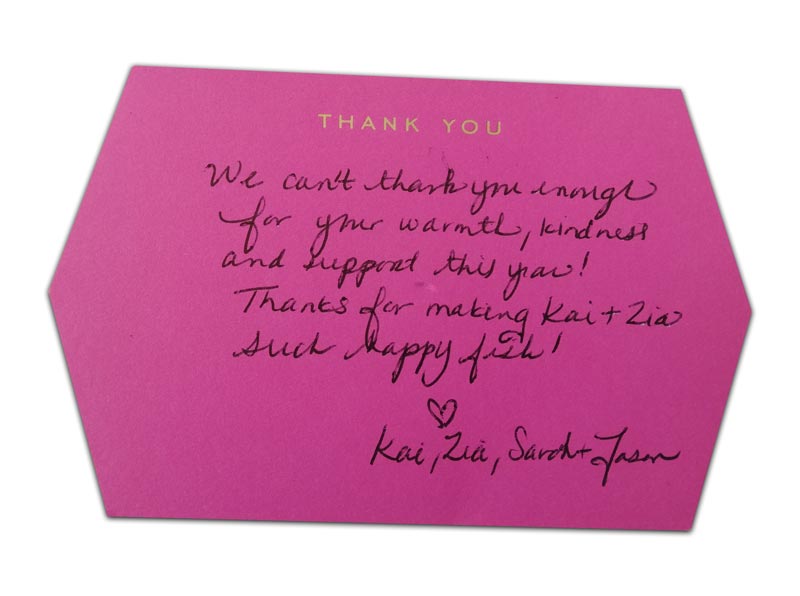 THANK YOU
We can't thank you enough
for your warmth, kindness
and support this year!
Thanks for making Kai + Zia
such happy fish!
Kai, Zia, Sarah + Jason